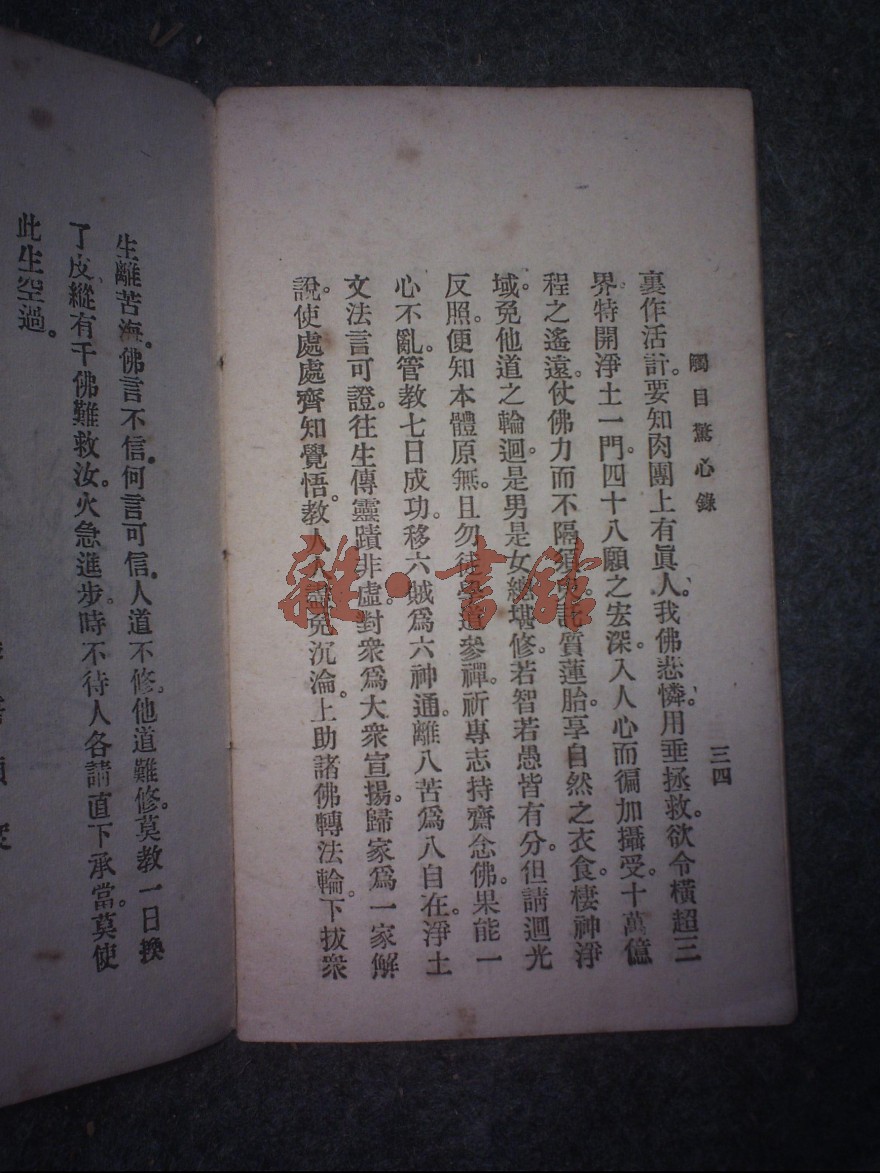 觸目驚心錄
三四
裏作活計。要知肉團上有眞人。我佛悲憐。用垂拯救。欲令橫超三
界。特開淨土一門。四十八願之宏深。入人心而徧加攝受。十萬億
程之遙遠。仗佛力而不隔須臾。託質蓮胎。享自然之衣食。棲神淨
域。免他道之輪迴。是男是女總堪修。若智若愚皆有分。但請迴光
反照。便知本體原無。且勿徒學道參禪。祈專志持齋念佛。果能一
心不亂。管教七日成功。移六賊爲六神通。離八苦爲八自在。淨土
文法言可證。往生傳靈蹟非虛。對衆爲大衆宣揚。歸家爲一家解
說。使處處齊知覺悟。教人人盡免沉淪。上助諸佛轉法輪。下拔衆
生離苦海。佛言不信。何言可信。人道不修。他道難修。莫教一日換
了皮。縱有千佛難救汝。火急進步。時不待人。各請直下承當。莫使
此生空過。
雜·書館